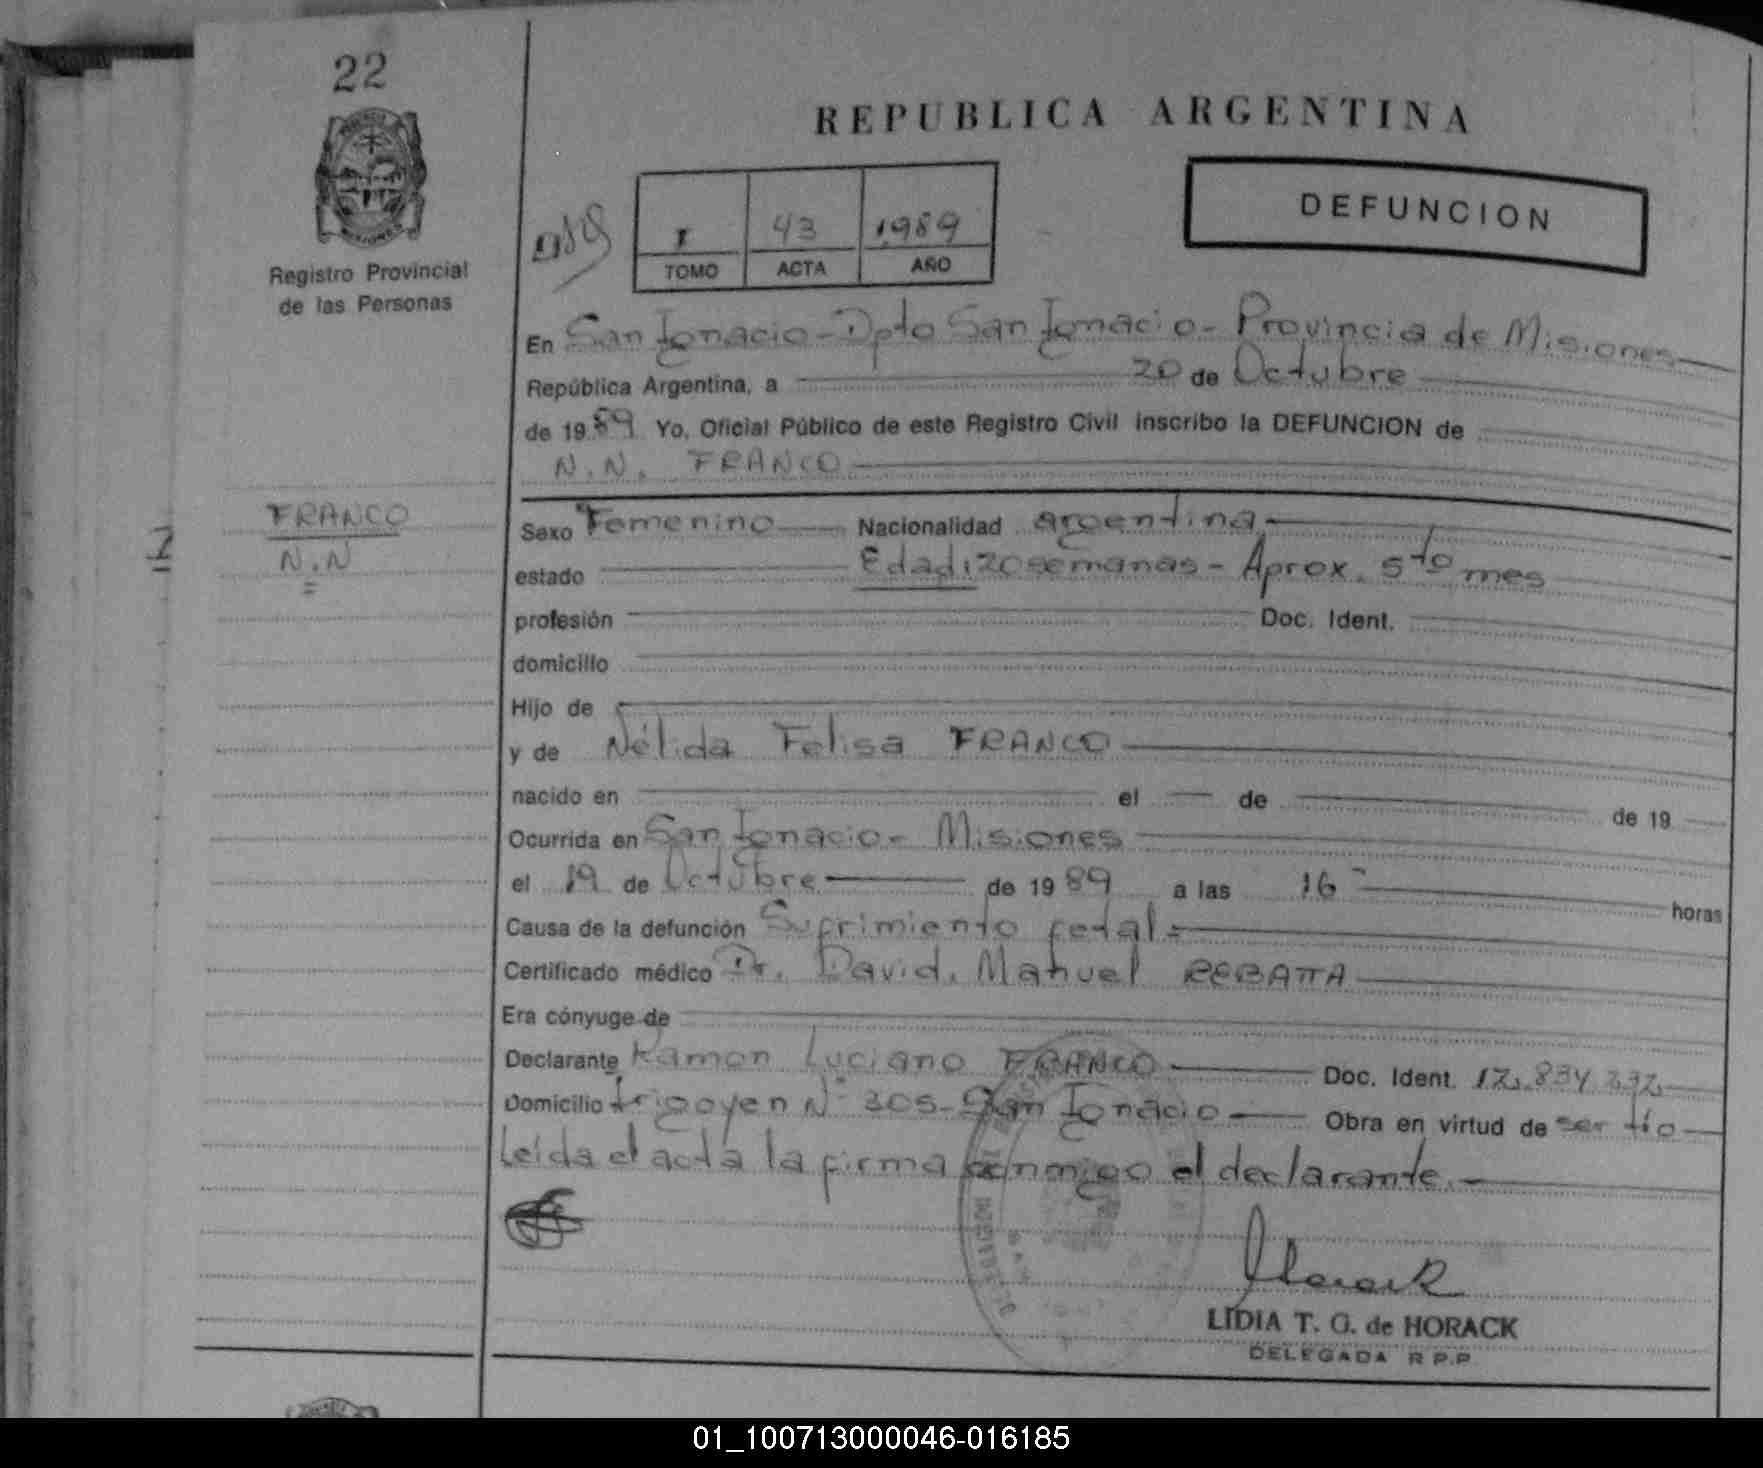 22
REPUBLICA ARGENTINA
DEFUNCION
I 43 1989
TOMO ACTA AÑO
Registro Provincial
de las Personas
En San Ignacio - Dpto San Ignacio - Provincia de Misiones
República Argentina, a 20 de Octubre
de 1989 Yo, Oficial Público de este Registro Civil inscribo la DEFUNCION de
N.N. FRANCO
FRANCO
N.N
Sexo Femenino Nacionalidad argentina
estado Edad: 20 semanas - Aprox. 5to mes
profesión Doc. Ident.
domicilio
Hijo de
y de Nélida Felisa FRANCO
nacido en el de de 19
Ocurrida en San Ignacio - Misiones
el 19 de Octubre de 1989 a las 16 horas
Causa de la defunción Sufrimiento fetal
Certificado médico Dr. David Manuel REBATTA
Era cónyuge de
Declarante Ramon Luciano FRANCO Doc. Ident. 17.834.232
Domicilio Irigoyen Nº 305 - San Ignacio Obra en virtud de ser tío
Leída el acta la firma conmigo el declarante.
LIDIA T. G. de HORACK
DELEGADA R.P.P.
01_100713000046-016185